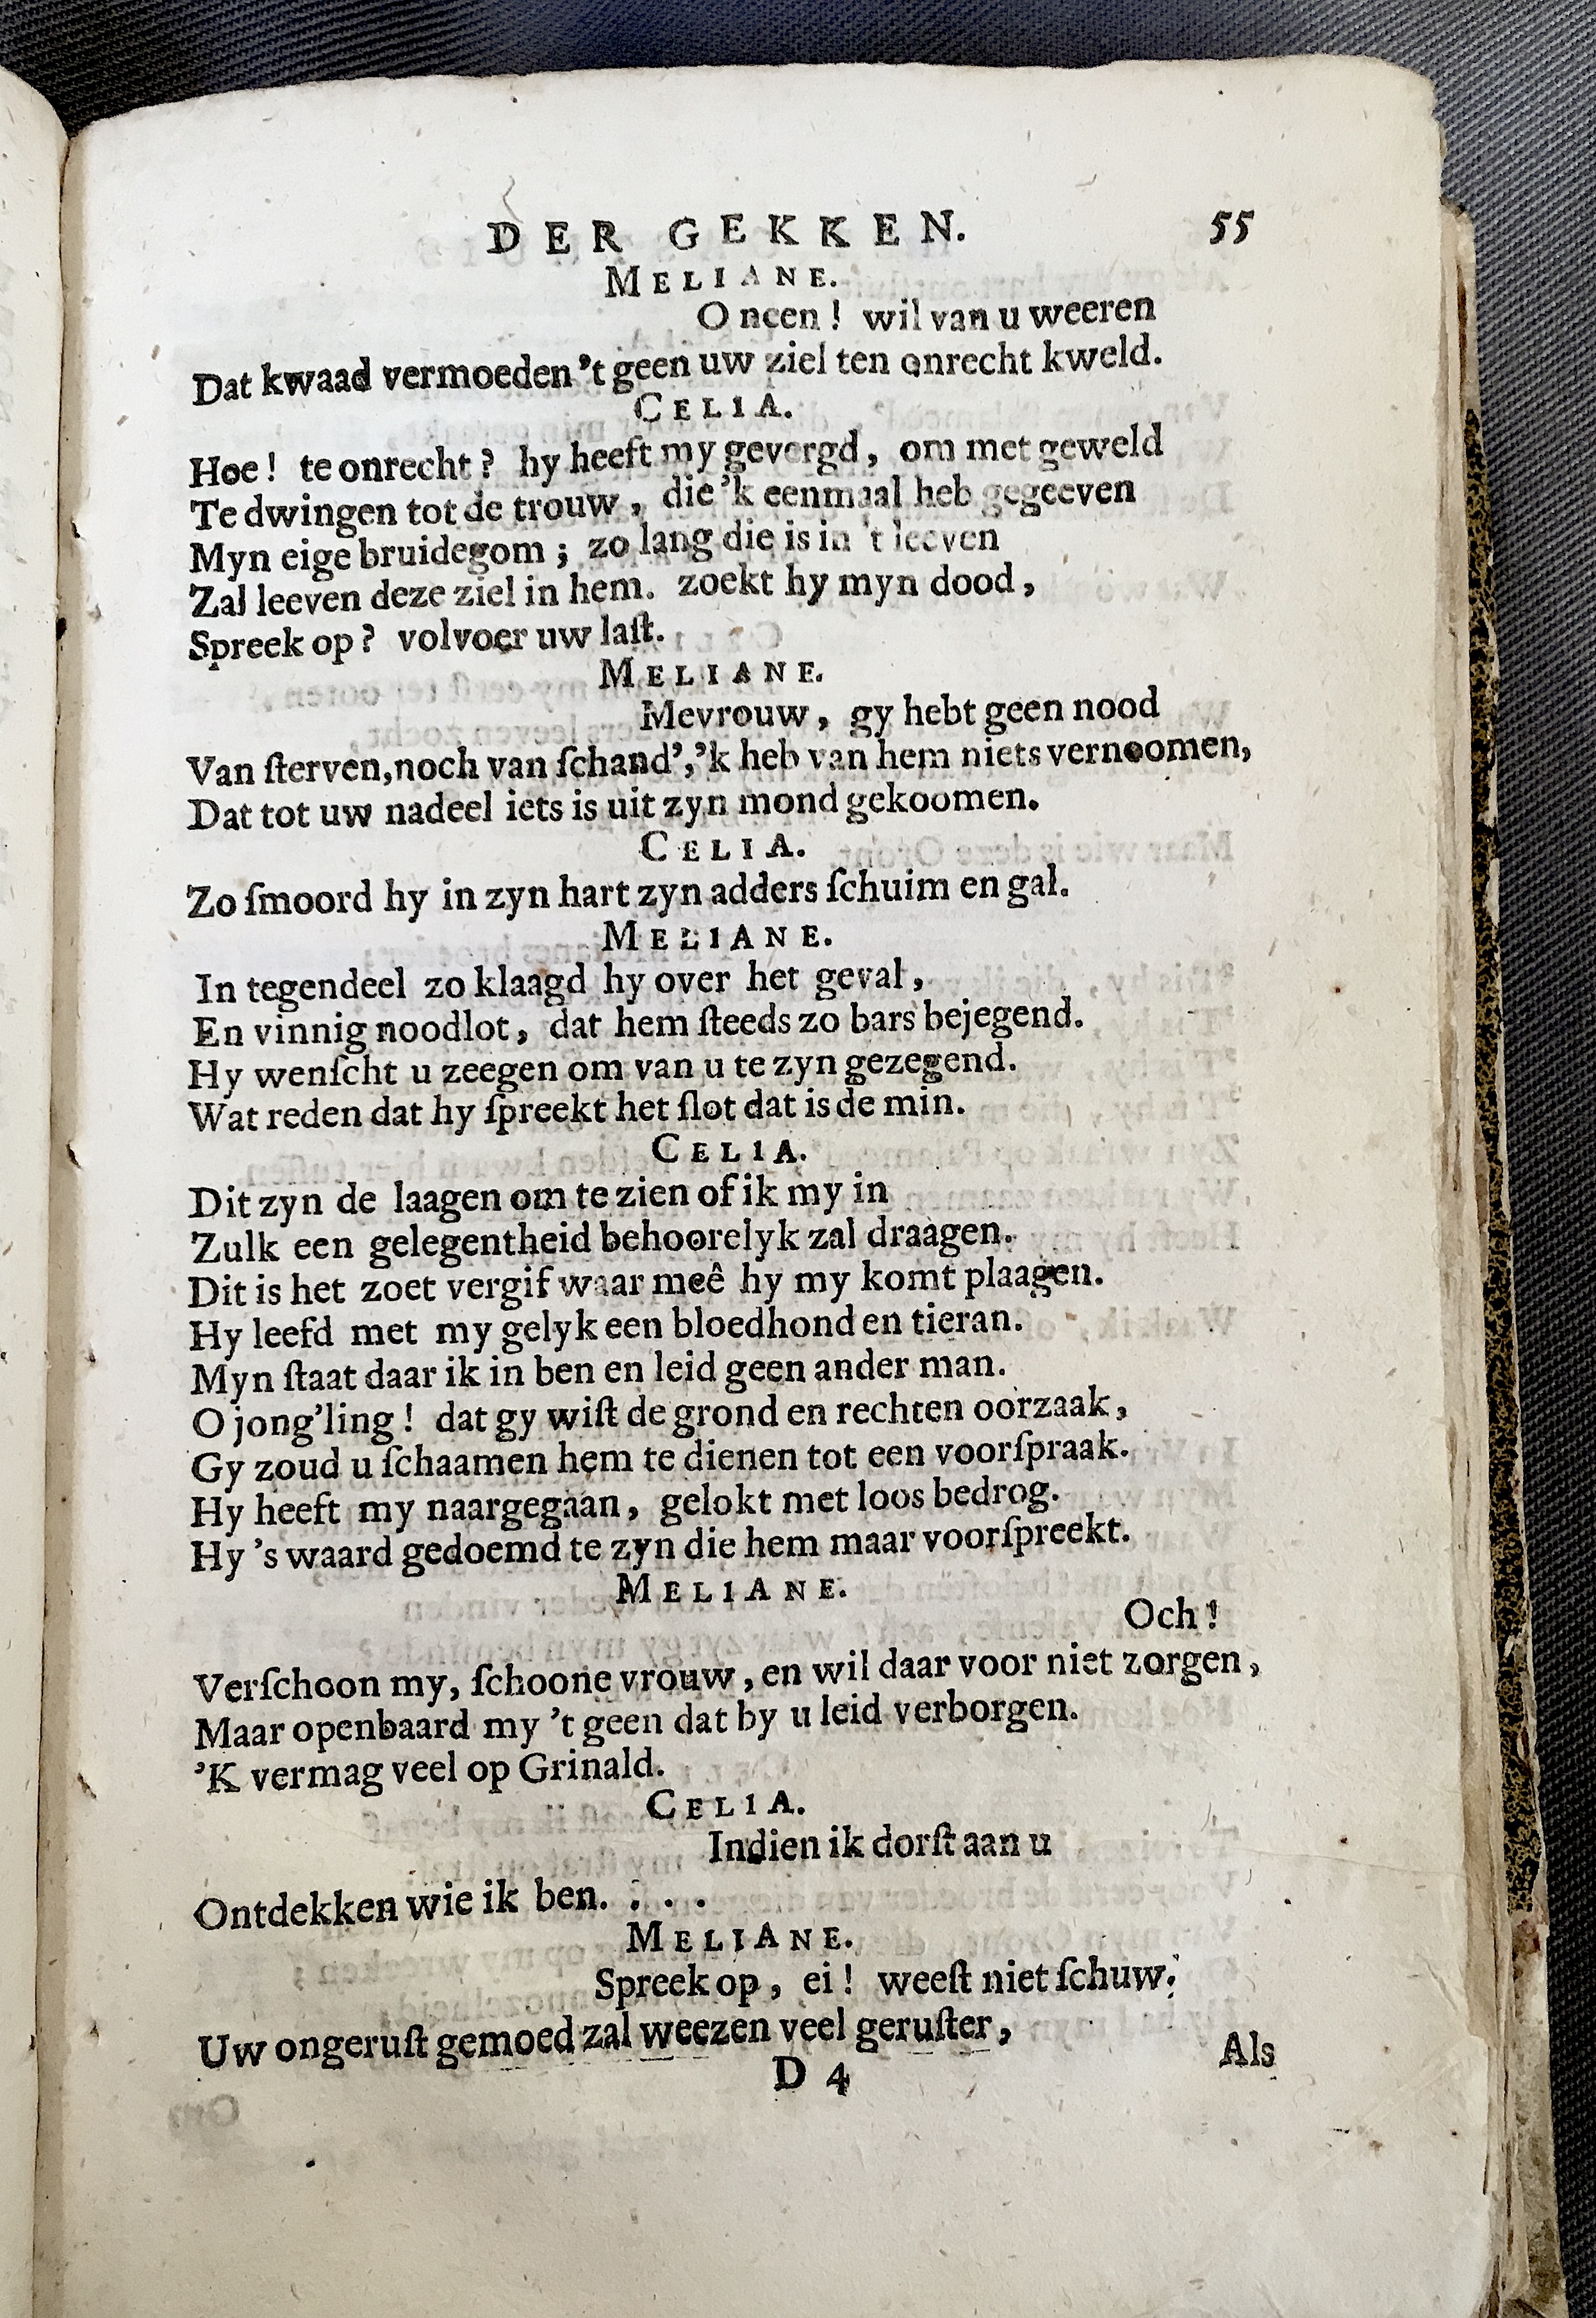 DER GEKKEN. 55
MELIANE.
O neen! wil van u weeren
Dat kwaad vermoeden 't geen uw ziel ten onrecht kweld.
CELIA.
Hoe! te onrecht? hy heeft my gevergd, om met geweld
Te dwingen tot de trouw, die 'k eenmaal heb gegeeven
Myn eige bruidegom; zo lang die is in 't leeven
Zal leeven deze ziel in hem. zoekt hy myn dood,
Spreek op? volvoer uw laſt.
MELIANE.
Mevrouw, gy hebt geen nood
Van ſterven, noch van ſchand', 'k heb van hem niets vernoomen,
Dat tot uw nadeel iets is uit zyn mond gekoomen.
CELIA.
Zo ſmoord hy in zyn hart zyn adders ſchuim en gal.
MELIANE.
In tegendeel zo klaagd hy over het geval,
En vinnig noodlot, dat hem ſteeds zo bars bejegend.
Hy wenſcht u zeegen om van u te zyn gezegend.
Wat reden dat hy ſpreekt het ſlot dat is de min.
CELIA.
Dit zyn de laagen om te zien of ik my in
Zulk een gelegentheid behoorelyk zal draagen.
Dit is het zoet vergif waar meê hy my komt plaagen.
Hy leefd met my gelyk een bloedhond en tieran.
Myn ſtaat daar ik in ben en leid geen ander man.
O jong'ling! dat gy wiſt de grond en rechten oorzaak,
Gy zoud u ſchaamen hem te dienen tot een voorſpraak.
Hy heeft my naargegaan, gelokt met loos bedrog.
Hy 's waard gedoemd te zyn die hem maar voorſpreekt.
MELIANE.
Och!
Verſchoon my, ſchoone vrouw, en wil daar voor niet zorgen,
Maar openbaard my 't geen dat by u leid verborgen.
'K vermag veel op Grinald.
CELIA.
Indien ik dorſt aan u
Ontdekken wie ik ben. . . .
MELIANE.
Spreek op, ei! weeſt niet ſchuw.
Uw ongeruſt gemoed zal weezen veel geruſter,
D 4 Als